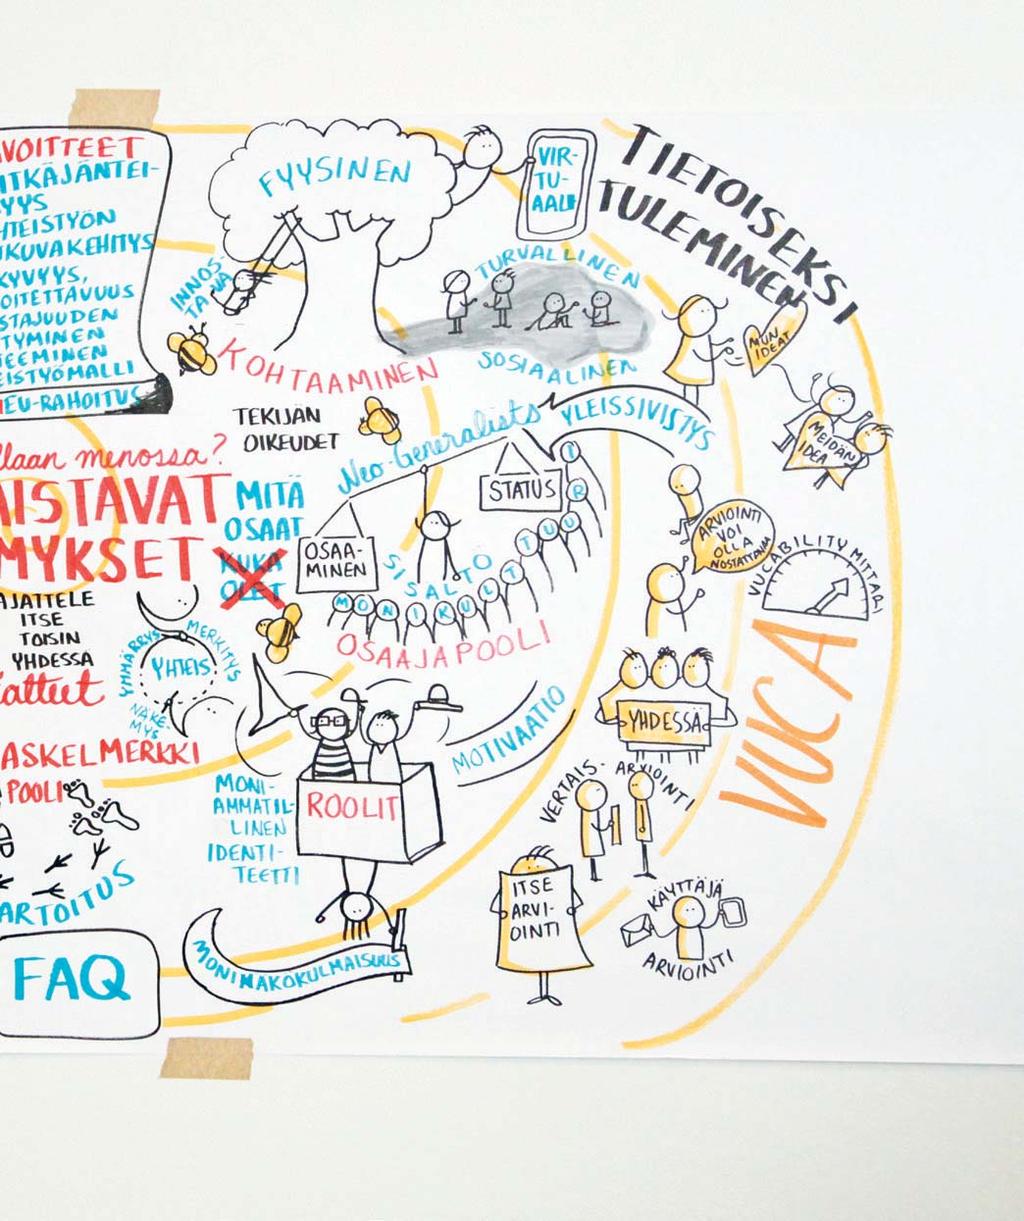 VOITTEET
ITKÄJÄNTEI-
YYS
HTEISTYÖN
UKUVA KEHITYS
KYVYYS,
OITETTAVUUS
STAJUUDEN
TYMINEN
TEEMINEN
EISTYÖMALLI
EU-RAHOITUS
llaan menossa?
MISTAVAT
MYKSET
AJATTELE
ITSE
TOISIN
YHDESSÄ
ASKELMERKKI
POOLI
ARTOITUS
FAQ
FYYSINEN
VIR-
TU-
AALI
INNOS-
TAVA
TURVALLINEN
SOSIAALINEN
KOHTAAMINEN
TEKIJÄN
OIKEUDET
MITÄ
OSAAT
KUKA
OLET
Neo-Generalists
YLEISSIVISTYS
STATUS
OSAA-
MINEN
SISÄLTÖ
MONIKULTTUURI
OSAAJAPOOLI
YMMÄRRYS
MERKITYS
YHTEIS
NÄKE-
MYS
ROOLIT
MONI-
AMMATIL-
LINEN
IDENTI-
TEETTI
MOTIVAATIO
MONINÄKÖKULMAISUUS
TIETOISEKSI
TULEMINEN
MUN
IDEAT
MEIDÄN
IDEA
ARVIOINTI
VOI
OLLA
NOSTATTAVAA
VUCABILITY MITTARI
VUCA
YHDESSÄ
VERTAIS-
ARVIOINTI
ITSE
ARVI-
OINTI
KÄYTTÄJÄ
ARVIOINTI